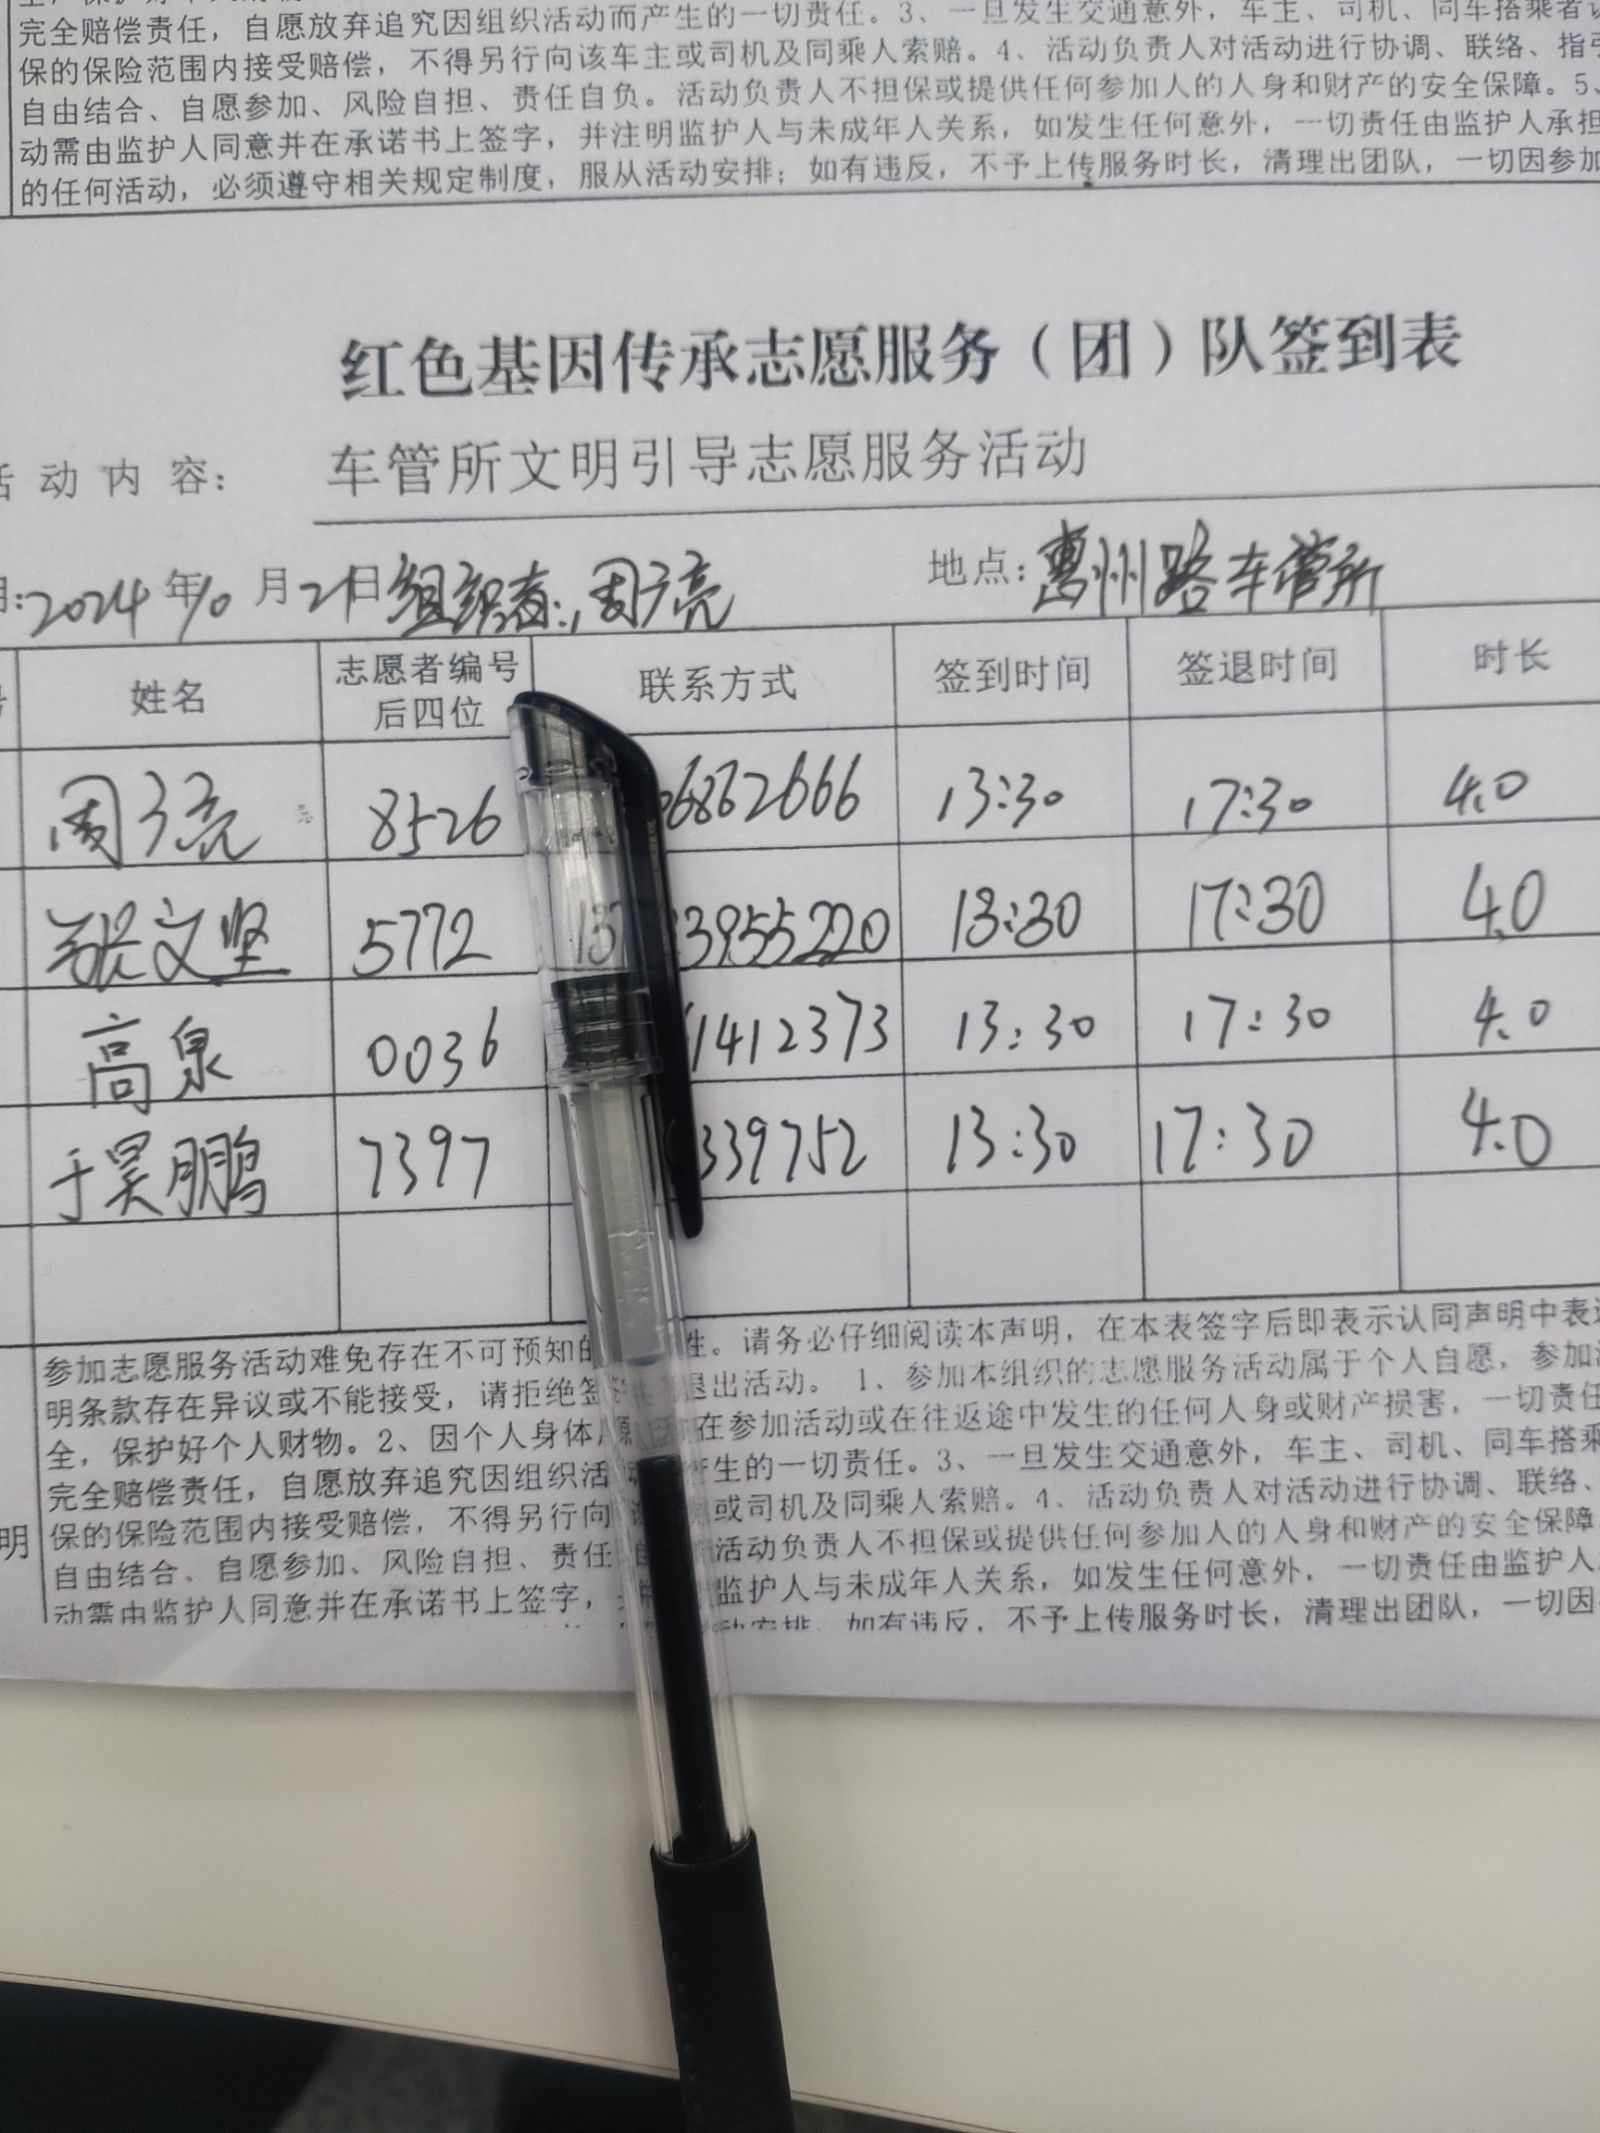 完全赔偿责任，自愿放弃追究因组织活动而产生的一切责任。3、一旦发生交通意外，车主、司机、同车搭乘者
保的保险范围内接受赔偿，不得另行向该车主或司机及同乘人索赔。4、活动负责人对活动进行协调、联络、指
自由结合、自愿参加、风险自担、责任自负。活动负责人不担保或提供任何参加人的人身和财产的安全保障。5、
动需由监护人同意并在承诺书上签字，并注明监护人与未成年人关系，如发生任何意外，一切责任由监护人承担
的任何活动，必须遵守相关规定制度，服从活动安排；如有违反，不予上传服务时长，清理出团队，一切因参加
红色基因传承志愿服务（团）队签到表
活动内容： 车管所文明引导志愿服务活动
2024年10月21日 组织者：周广亮 地点：惠州路车管所
姓名 志愿者编号后四位 联系方式 签到时间 签退时间 时长
周广亮 8526 6862666 13:30 17:30 4.0
张文坚 5772 13955220 13:30 17:30 4.0
高泉 0036 1412373 13:30 17:30 4.0
于昊鹏 7397 339752 13:30 17:30 4.0
参加志愿服务活动难免存在不可预知的 性。请务必仔细阅读本声明，在本表签字后即表示认同声明中表
明条款存在异议或不能接受，请拒绝签 退出活动。1、参加本组织的志愿服务活动属于个人自愿，参加
全，保护好个人财物。2、因个人身体原 在参加活动或在往返途中发生的任何人身或财产损害，一切责任
完全赔偿责任，自愿放弃追究因组织活 产生的一切责任。3、一旦发生交通意外，车主、司机、同车搭乘
保的保险范围内接受赔偿，不得另行向 或司机及同乘人索赔。4、活动负责人对活动进行协调、联络、
明 自由结合、自愿参加、风险自担、责任 活动负责人不担保或提供任何参加人的人身和财产的安全保障
动需由监护人同意并在承诺书上签字， 监护人与未成年人关系，如发生任何意外，一切责任由监护人
动安排，如有违反，不予上传服务时长，清理出团队，一切因